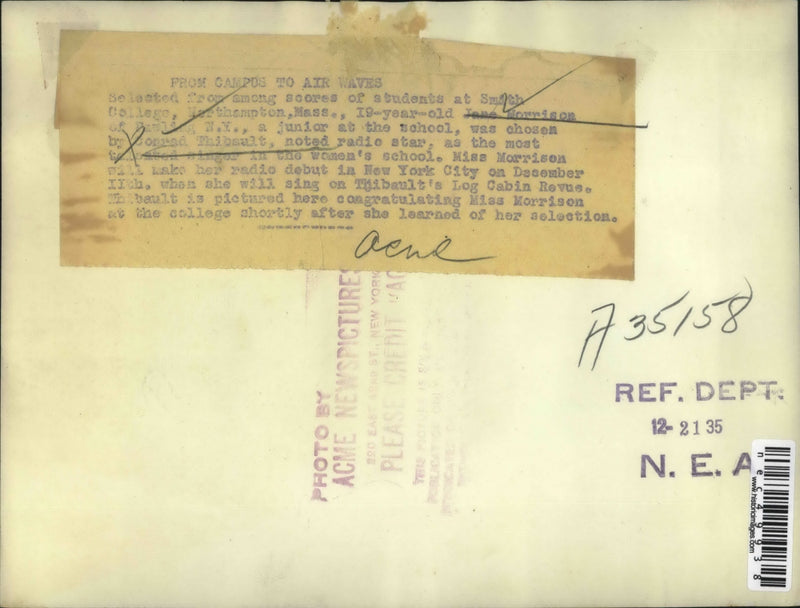 FROM CAMPUS TO AIR WAVES
Selected from among scores of students at Smith
College, Northampton,Mass., 19-year-old Jane Morrison
of N.Y., a junior at the school, was chosen
by Conrad Thibault, noted radio star, as the most
talented singer in the women's school. Miss Morrison
will make her radio debut in New York City on December
11th, when she will sing on Thibault's Log Cabin Revue.
Thibault is pictured here congratulating Miss Morrison
at the college shortly after she learned of her selection.
acme
PHOTO BY
ACME NEWSPICTURES
220 EAST 42ND ST., NEW YORK
PLEASE CREDIT "AC
THIS PICTURE IS SOLD
A35158
REF. DEPT.
12-21 35
N. E. A
nec49938
www.historicimages.com